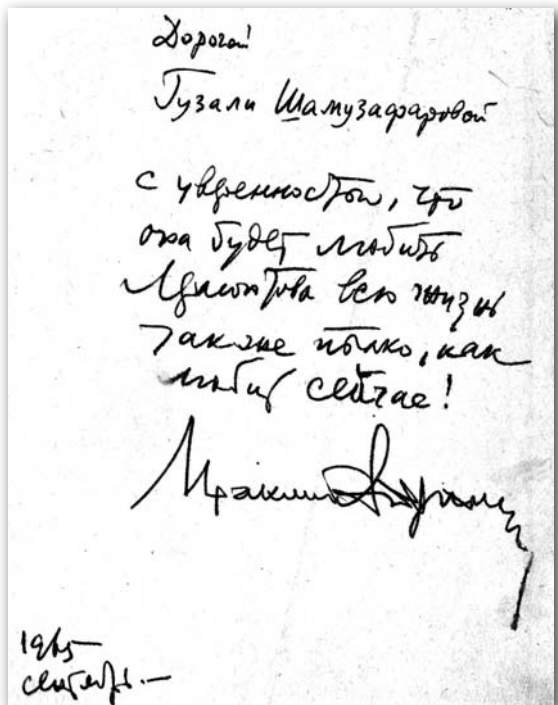 Дорогой
Гузали Шамузафаровой
с уверенностью, что
она будет любить
Лермонтова всю жизнь
так же пылко, как
любит сейчас!
Ираклий Андроников
1965
сентябрь.—